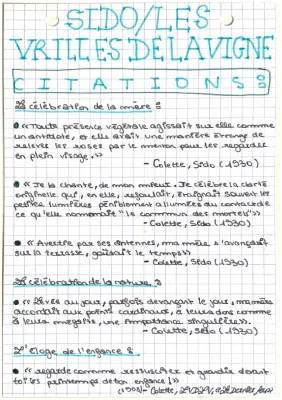 SIDO/LES
VRILLES DE LA VIGNE
CITATIONS :
La célébration de la mère :
• « Toute présence végétale agissait sur elle comme
un antidote, et elle avait une manière étrange de
relever les roses par le menton pour les regarder
en plein visage. »
- Colette, Sido (1930)
• « Je la chante, de mon mieux. Je célèbre la clarté
originelle qui, en elle, refoulait, éteignait souvent les
petites lumières péniblement allumées au contact de
ce qu'elle nommait "le commun des mortels" »
- Colette, Sido (1930)
• « Avertie par ses antennes, ma mère s'avançait
sur la terrasse, goûtait le temps »
- Colette, Sido (1930)
La célébration de la nature :
• « Élevée au jour, parfois devançant le jour, ma mère
accordait aux points cardinaux, à leurs dons comme
à leurs méfaits, une importance singulière ».
- Colette, Sido (1930)
L'éloge de l'enfance :
• « regarde comme ressusciter et grandir devant
toi les printemps de ton enfance ! »
(1908) - Colette,